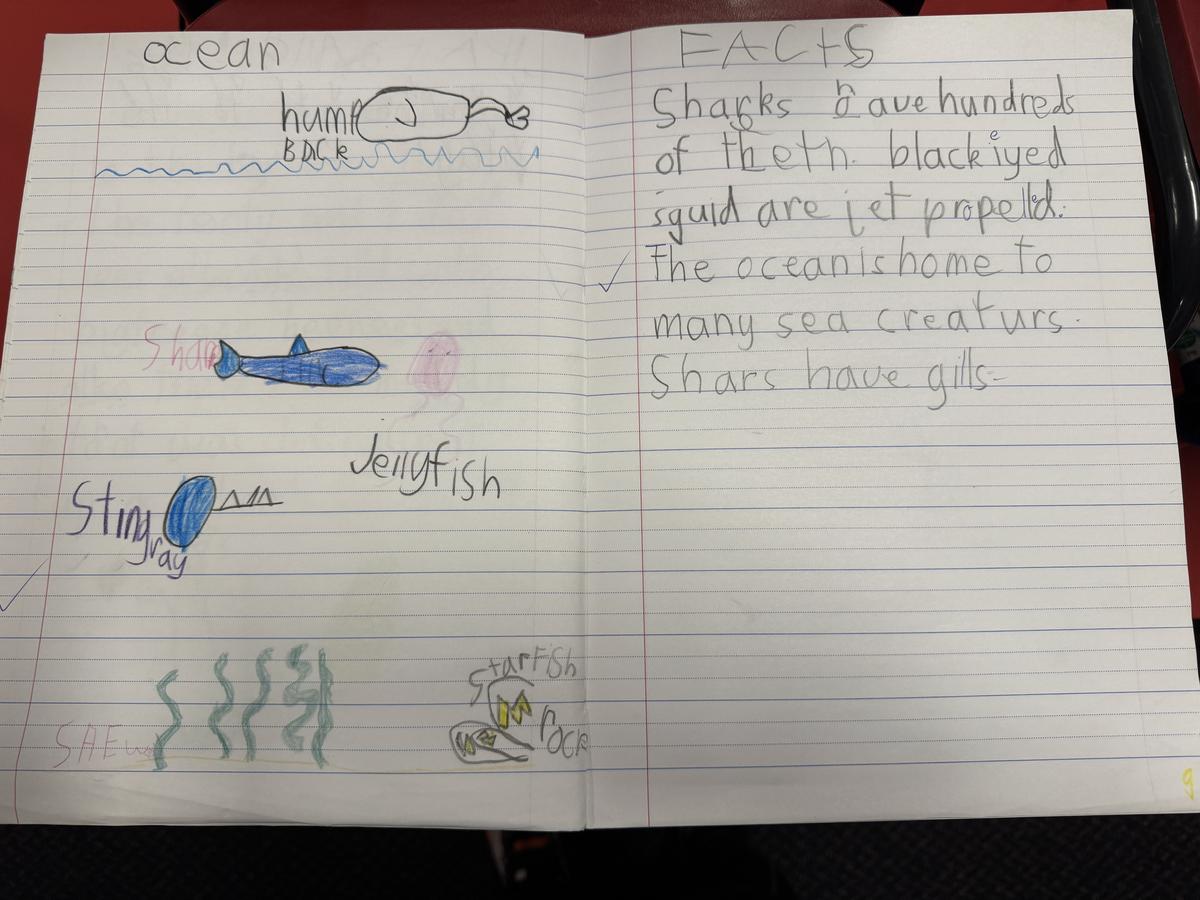 ocean
hump
BACK
Shar
Jellyfish
Sting
ray
Starfish
rock
SAEw
FACtS
Sharks have hundreds
of theth. black eyed
squid are jet propelld.
The ocean is home to
many sea creaturs.
Shars have gills
9